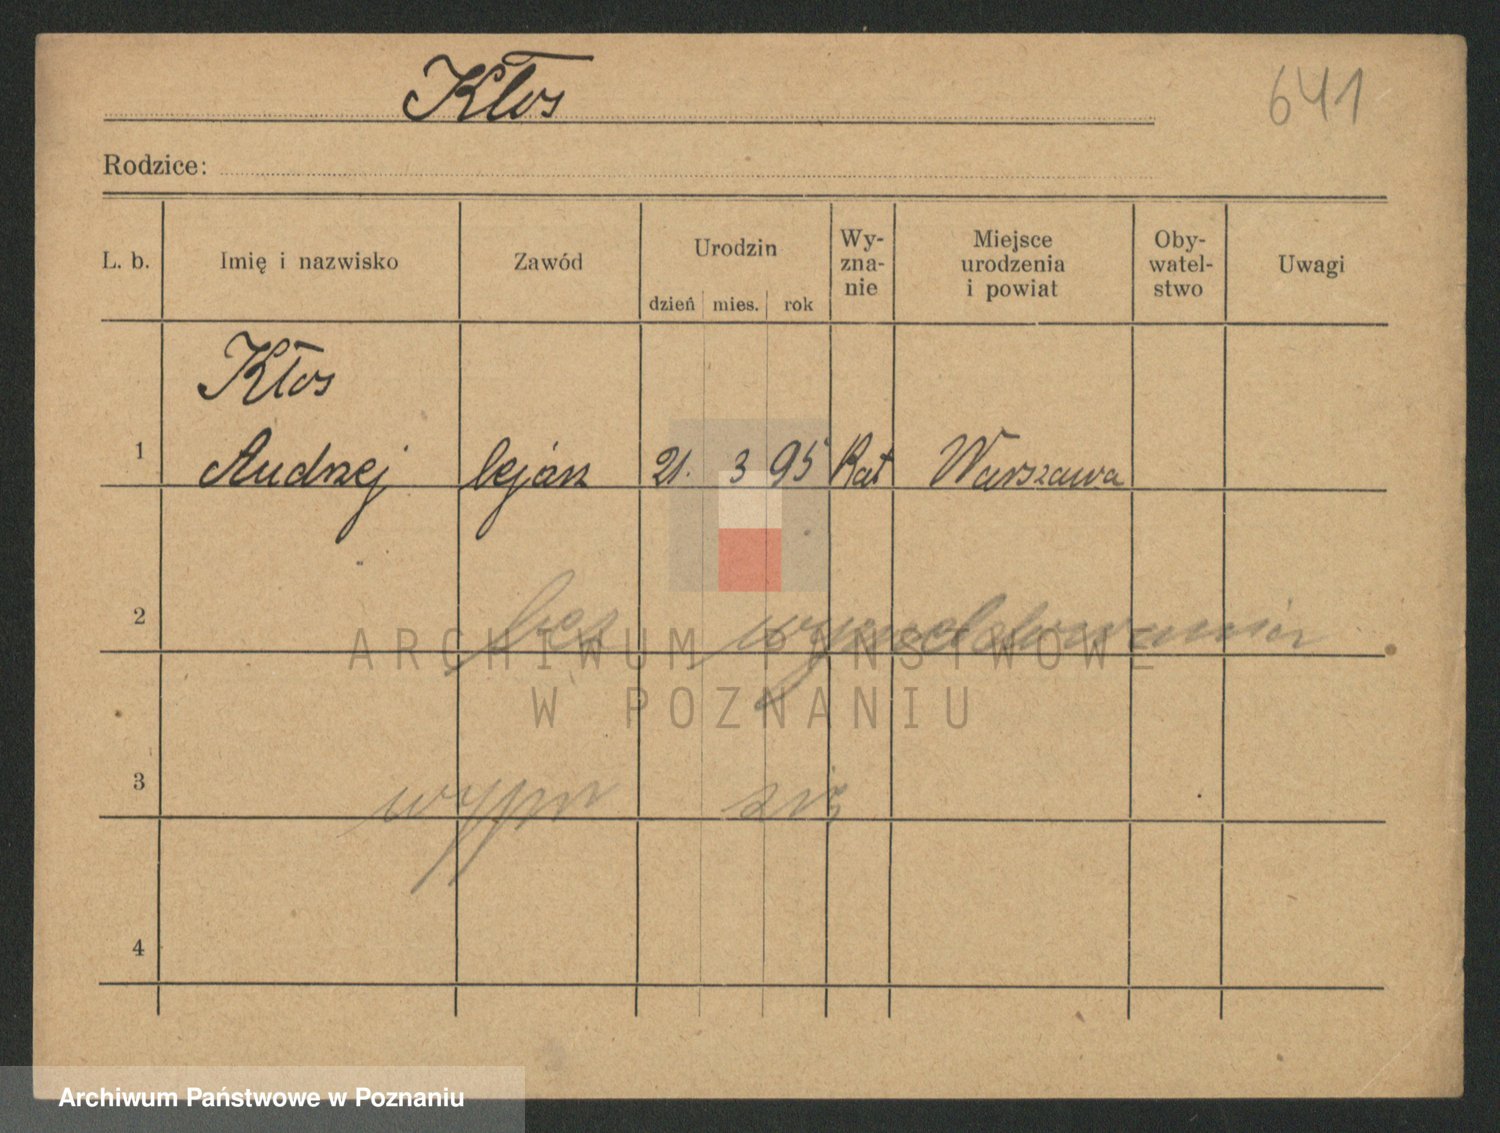 Kłos
641
Rodzice:
L. b. Imię i nazwisko Zawód Urodzin dzień mies. rok Wy-zna-nie Miejsce urodzenia i powiat Oby-watel-stwo Uwagi
Kłos
1 Andrzej lejárz 21. 3 95 Kat Warszawa
2 bez wymeldowania
ARCHIWUM PAŃSTWOWE
W POZNANIU
3 się
4
Archiwum Państwowe w Poznaniu